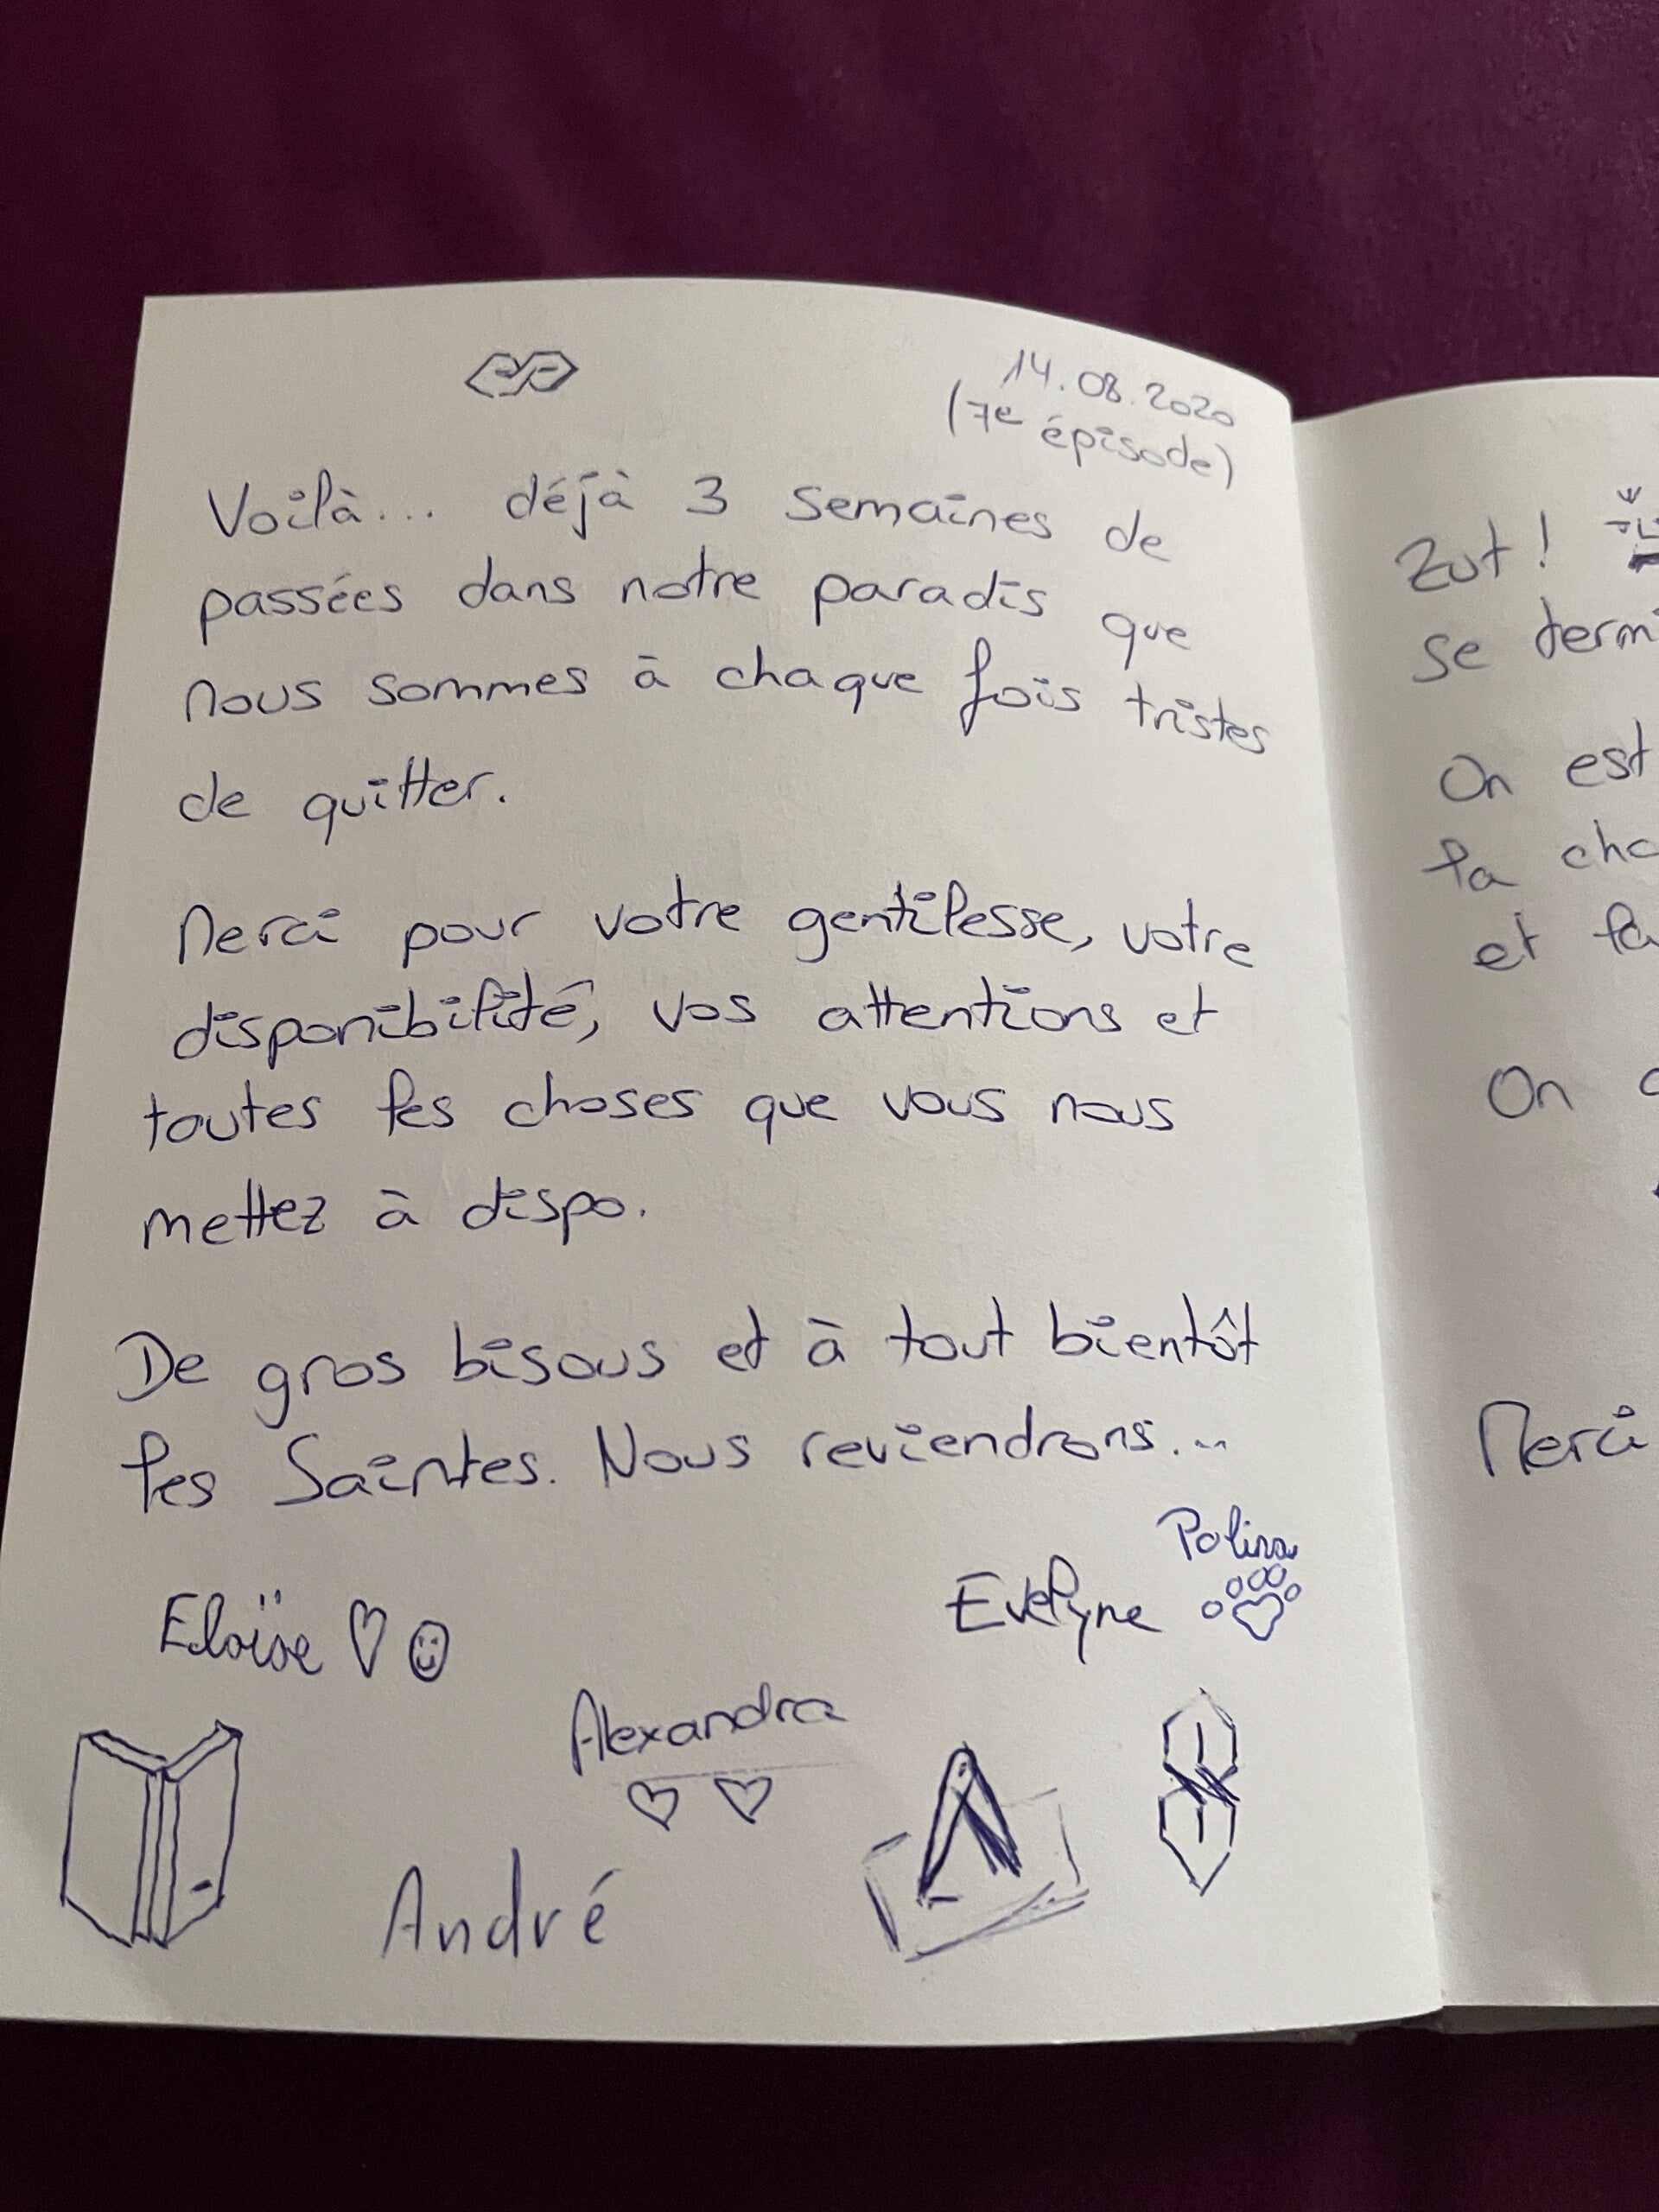 14.08.2020
(7e épisode)
Voilà... déjà 3 semaines de
passées dans notre paradis que
nous sommes à chaque fois tristes
de quitter.
Merci pour votre gentilesse, votre
disponibilité, vos attentions et
toutes les choses que vous nous
mettez à dispo.
De gros bisous et à tout bientôt
les Saintes. Nous reviendrons...
Polina
Eloïse
Evelyne
Alexandra
André
Zut !
se termi
On est
la cha
et la
On
Merci